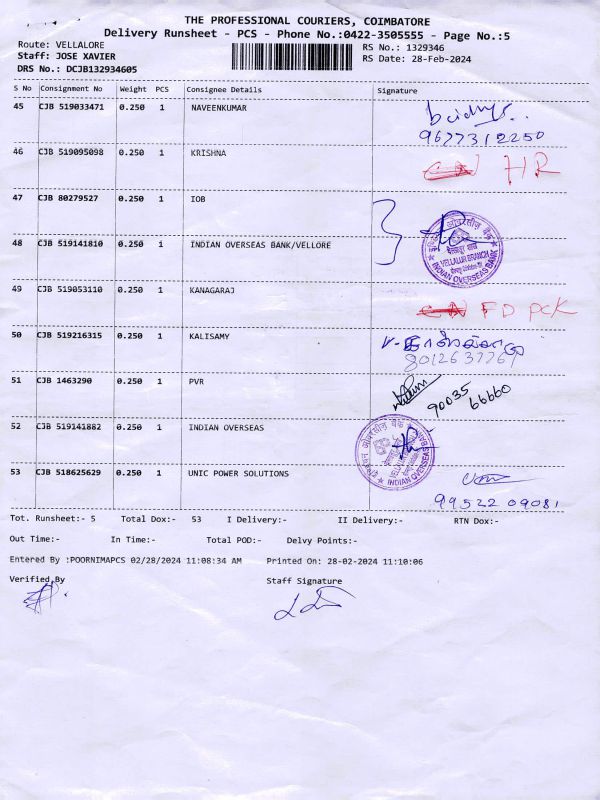 THE PROFESSIONAL COURIERS, COIMBATORE
Delivery Runsheet - PCS - Phone No.:0422-3505555 - Page No.:5
Route: VELLALORE RS No.: 1329346
Staff: JOSE XAVIER RS Date: 28-Feb-2024
DRS No.: DCJB132934605
S No Consignment No Weight PCS Consignee Details Signature
45 CJB 519033471 0.250 1 NAVEENKUMAR
9677312250
46 CJB 519095098 0.250 1 KRISHNA CN HR
47 CJB 80279527 0.250 1 IOB
48 CJB 519141810 0.250 1 INDIAN OVERSEAS BANK/VELLORE
VELLALUR BRANCH
INDIAN OVERSEAS BANK
49 CJB 519053110 0.250 1 KANAGARAJ CN FD PCK
50 CJB 519216315 0.250 1 KALISAMY
8012637767
51 CJB 1463290 0.250 1 PVR 90035
66660
52 CJB 519141882 0.250 1 INDIAN OVERSEAS
INDIAN OVERSEAS BANK
53 CJB 518625629 0.250 1 UNIC POWER SOLUTIONS
99522 09081
Tot. Runsheet:- 5 Total Dox:- 53 I Delivery:- II Delivery:- RTN Dox:-
Out Time:- In Time:- Total POD:- Delvy Points:-
Entered By :POORNIMAPCS 02/28/2024 11:08:34 AM Printed On: 28-02-2024 11:10:06
Verified By Staff Signature